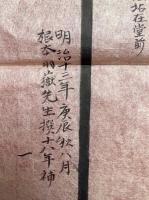 站在堂前
明治十三年庚辰秋八月
根本羽嶽先生撰十八年補
一